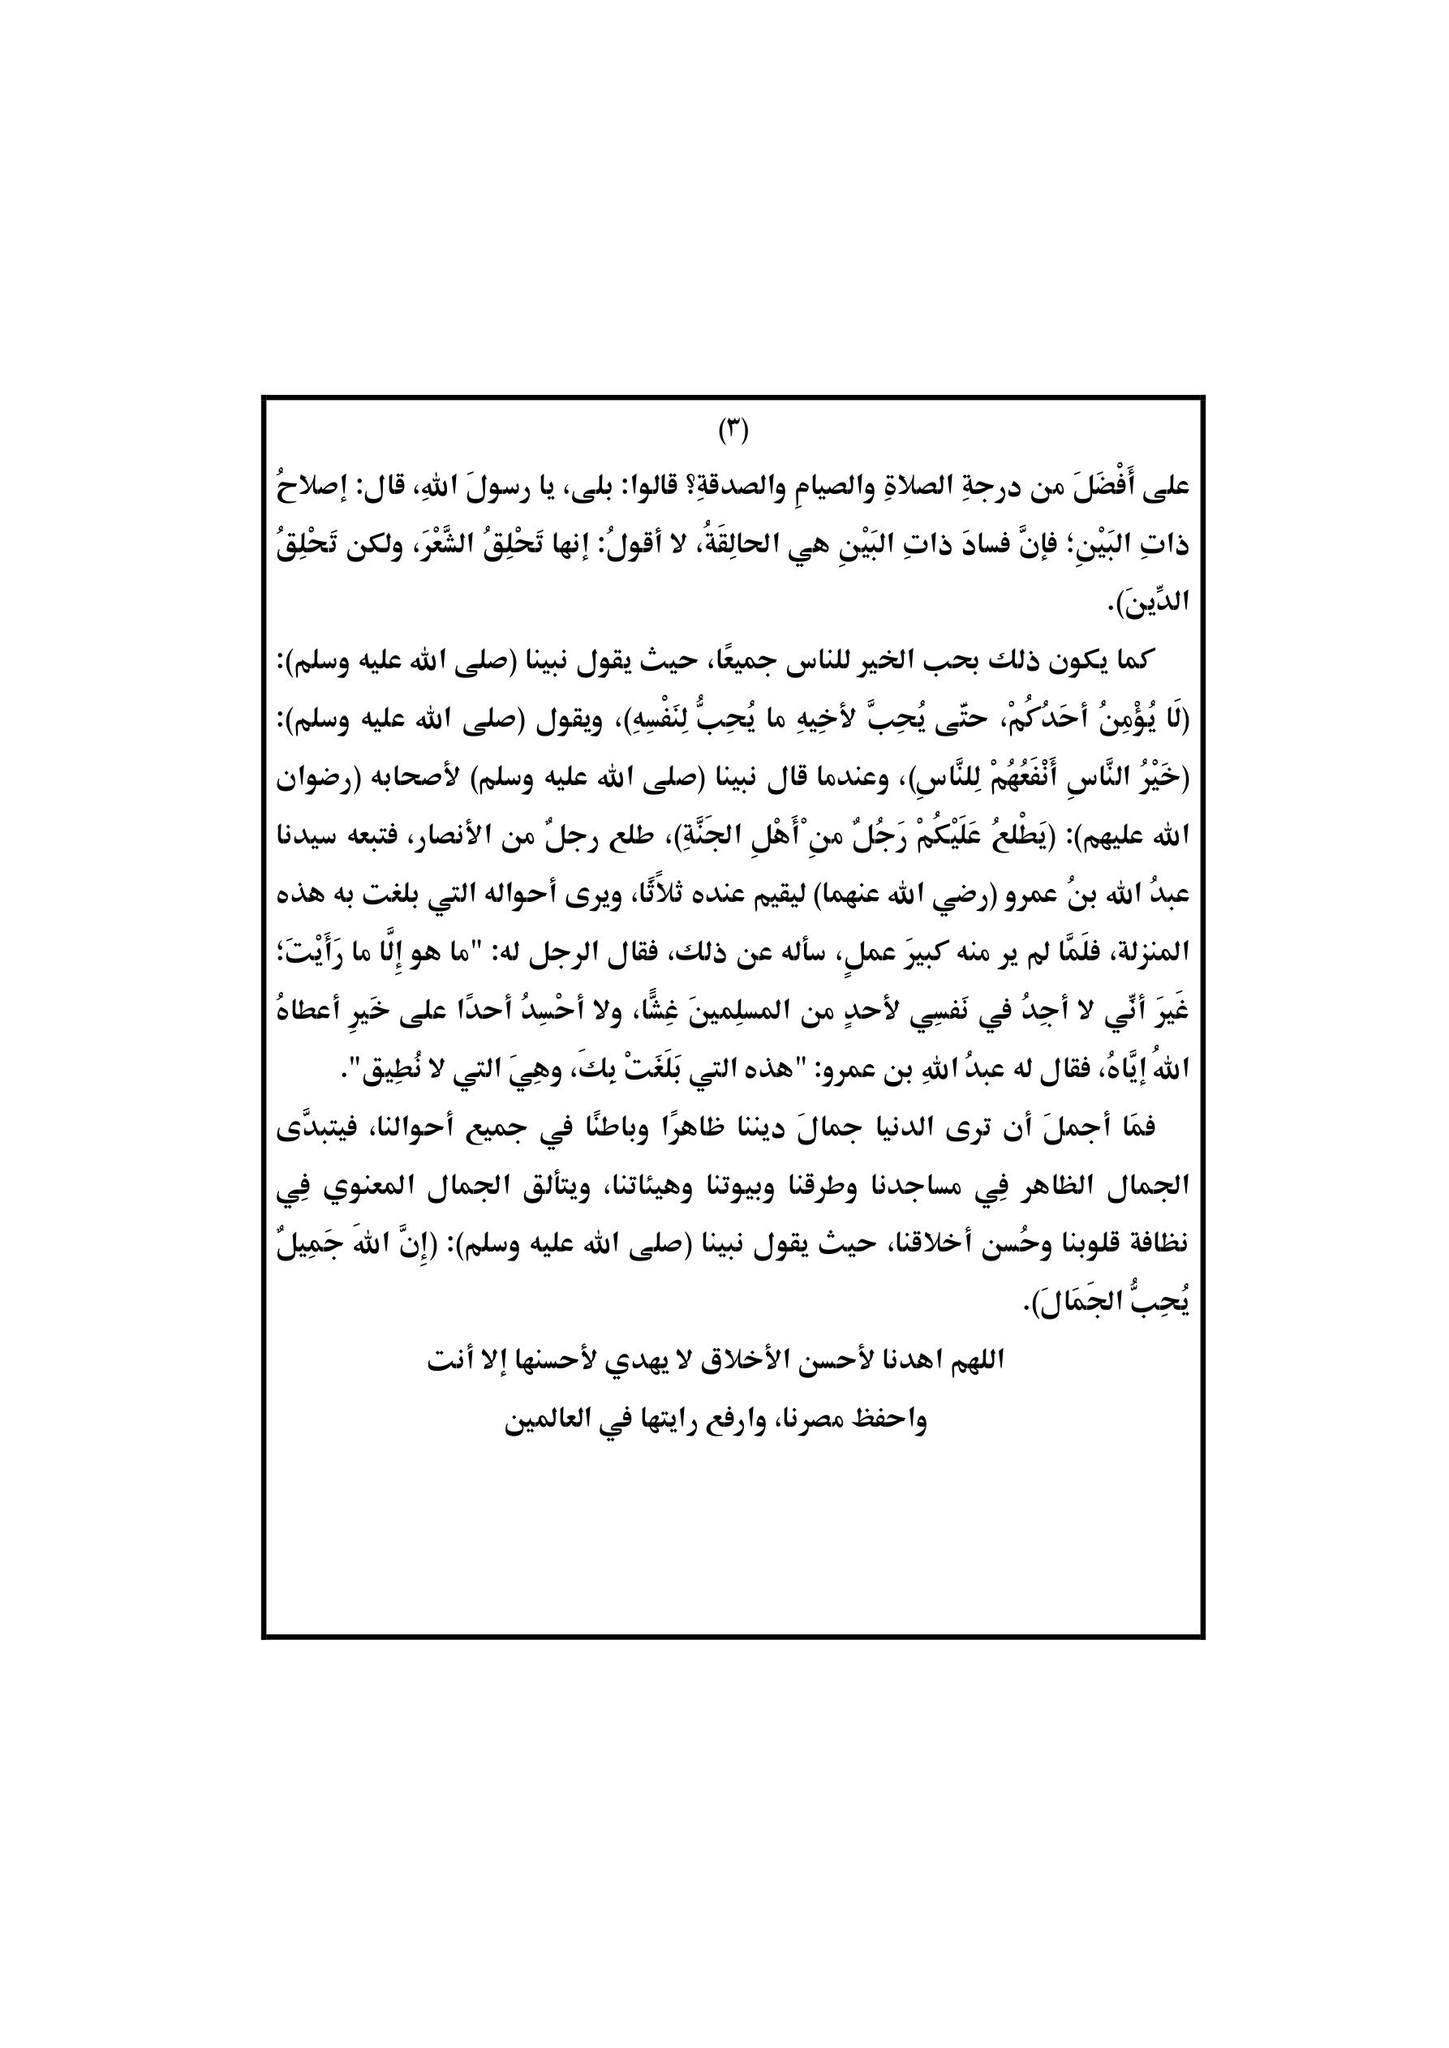 (٣)
على أَفْضَلَ من درجةِ الصلاةِ والصيامِ والصدقةِ؟ قالوا: بلى، يا رسولَ اللهِ، قال: إصلاحُ
ذاتِ البَيْنِ؛ فإنَّ فسادَ ذاتِ البَيْنِ هي الحالِقَةُ، لا أقولُ: إنها تَحْلِقُ الشَّعْرَ، ولكن تَحْلِقُ
الدِّينَ).
كما يكون ذلك بحب الخير للناس جميعًا، حيث يقول نبينا (صلى الله عليه وسلم):
(لَا يُؤْمِنُ أحَدُكُمْ، حتّى يُحِبَّ لأخِيهِ ما يُحِبُّ لِنَفْسِهِ)، ويقول (صلى الله عليه وسلم):
(خَيْرُ النَّاسِ أَنْفَعُهُمْ لِلنَّاسِ)، وعندما قال نبينا (صلى الله عليه وسلم) لأصحابه (رضوان
الله عليهم): (يَطْلعُ عَلَيْكُمْ رَجُلٌ منِ ْأَهْلِ الجَنَّةِ)، طلع رجلٌ من الأنصار، فتبعه سيدنا
عبدُ الله بنُ عمرو (رضي الله عنهما) ليقيم عنده ثلاثًا، ويرى أحواله التي بلغت به هذه
المنزلة، فلَمَّا لم ير منه كبيرَ عملٍ، سأله عن ذلك، فقال الرجل له: "ما هو إلَّا ما رَأَيْتَ؛
غَيرَ أنّي لا أجِدُ في نَفسِي لأحدٍ من المسلِمينَ غِشًّا، ولا أحْسِدُ أحدًا على خَيرِ أعطاهُ
اللهُ إيَّاهُ، فقال له عبدُ اللهِ بن عمرو: "هذه التي بَلَغَتْ بِكَ، وهِيَ التي لا نُطِيق".
فمَا أجملَ أن ترى الدنيا جمالَ ديننا ظاهرًا وباطنًا في جميع أحوالنا، فيتبدَّى
الجمال الظاهر فِي مساجدنا وطرقنا وبيوتنا وهيئاتنا، ويتألق الجمال المعنوي فِي
نظافة قلوبنا وحُسن أخلاقنا، حيث يقول نبينا (صلى الله عليه وسلم): (إِنَّ اللهَ جَمِيلٌ
يُحِبُّ الجَمَالَ).
اللهم اهدنا لأحسن الأخلاق لا يهدي لأحسنها إلا أنت
واحفظ مصرنا، وارفع رايتها في العالمين